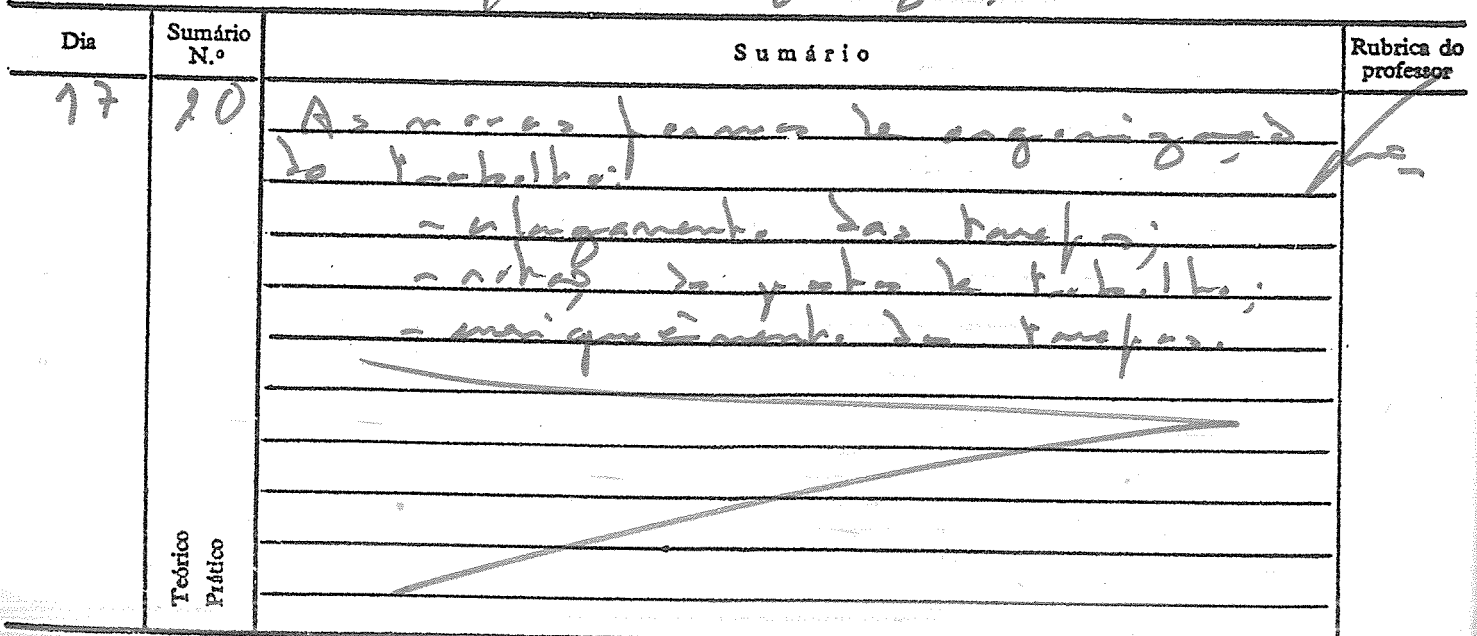 Dia
Sumário N.º
Sumário
Rubrica do professor
17
20
As novas formas de organização
do trabalho:
- alargamento das tarefas;
- rotação de postos de trabalho;
- enriquecimento das tarefas.
Teórico
Prático